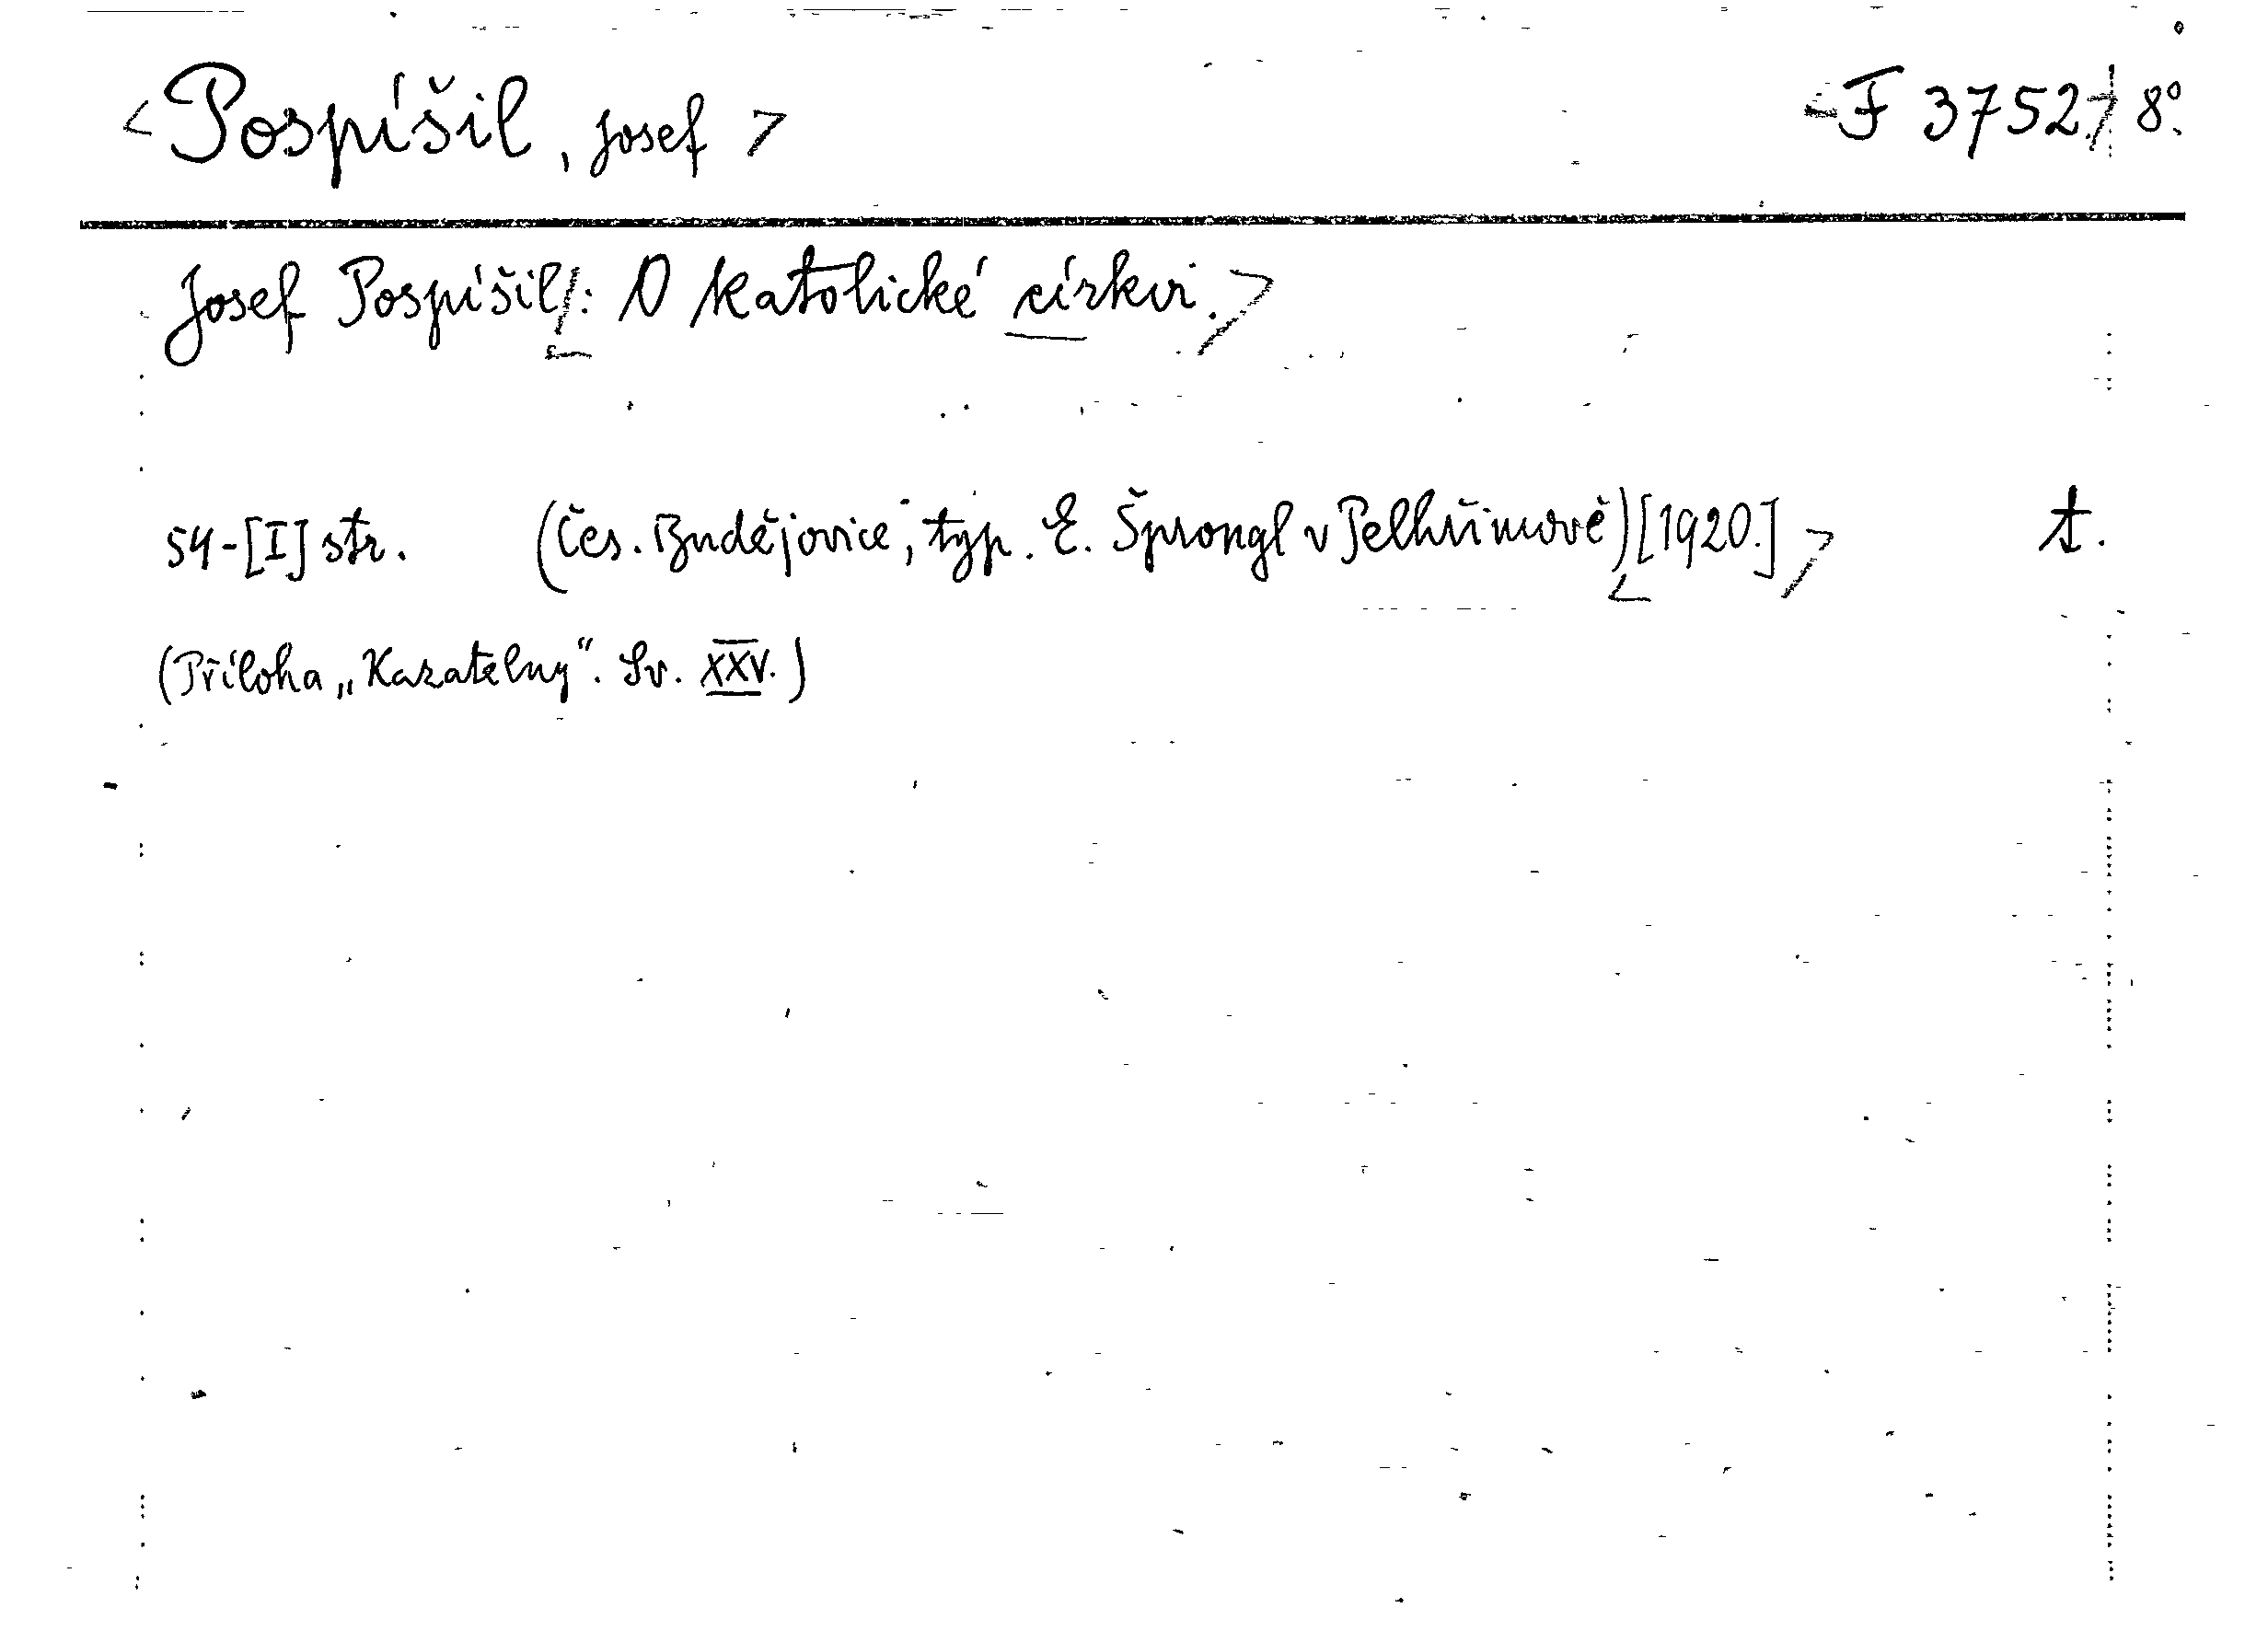 <Pospíšil, Josef> <F 3752> 8°.
Josef Pospíšil<: O katolické církvi.>
54-[I] str. (Čes. Budějovice, typ. E. Šprongl v Pelhřimově)<[1920.]> t.
(Příloha „Kazatelny“. Sv. XXV.)